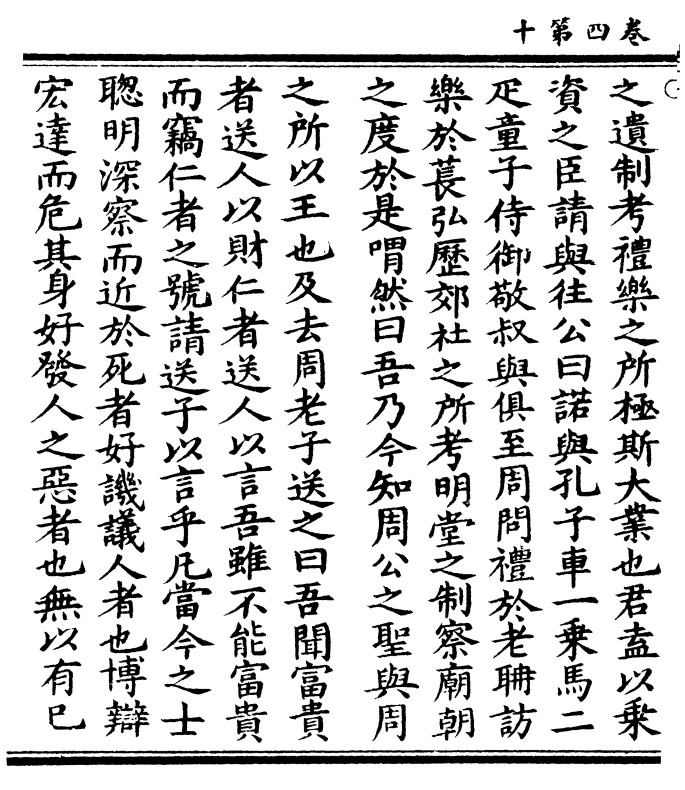 卷四第十
之遺制考禮樂之所極斯大業也君盍以乘
資之臣請與往公曰諾與孔子車一乘馬二
疋童子侍御敬叔與俱至周問禮於老聃訪
樂於萇弘歷郊社之所考明堂之制察廟朝
之度於是喟然曰吾乃今知周公之聖與周
之所以王也及去周老子送之曰吾聞富貴
者送人以財仁者送人以言吾雖不能富貴
而竊仁者之號請送子以言乎凡當今之士
聰明深察而近於死者好譏議人者也博辯
宏達而危其身好發人之惡者也無以有已